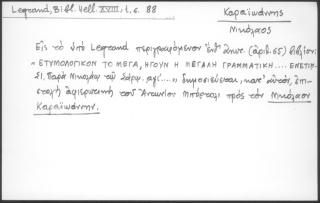 Legrand, Bibl. Hell. XVIII, 1, σ. 88
Καραϊωάννης
Νικόλαος
Εἰς τὸ ὑπὸ Legrand περιγραφόμενον ἐπ. (ἀριθ. 65) βιβλίον:
« ΕΤΥΜΟΛΟΓΙΚΟΝ ΤΟ ΜΕΓΑ, ΗΓΟΥΝ Η ΜΕΓΑΛΗ ΓΡΑΜΜΑΤΙΚΗ.... ΕΝΕΤΙΗ-
ΣΙ, Παρὰ Νικολάῳ τῷ Σάρῳ. ͵αψί....» δημοσιεύεται, κατ' αὐτὸν, ἐπι-
στολὴ ἀφιερωτικὴ τοῦ Ἀντωνίου Μπόρτολι πρὸς τὸν Νικόλαον
Καραϊωάννην.